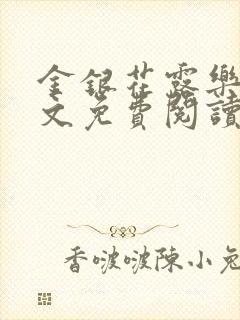 金銀花露樂
文免費閱讀
香啵啵陳小兔